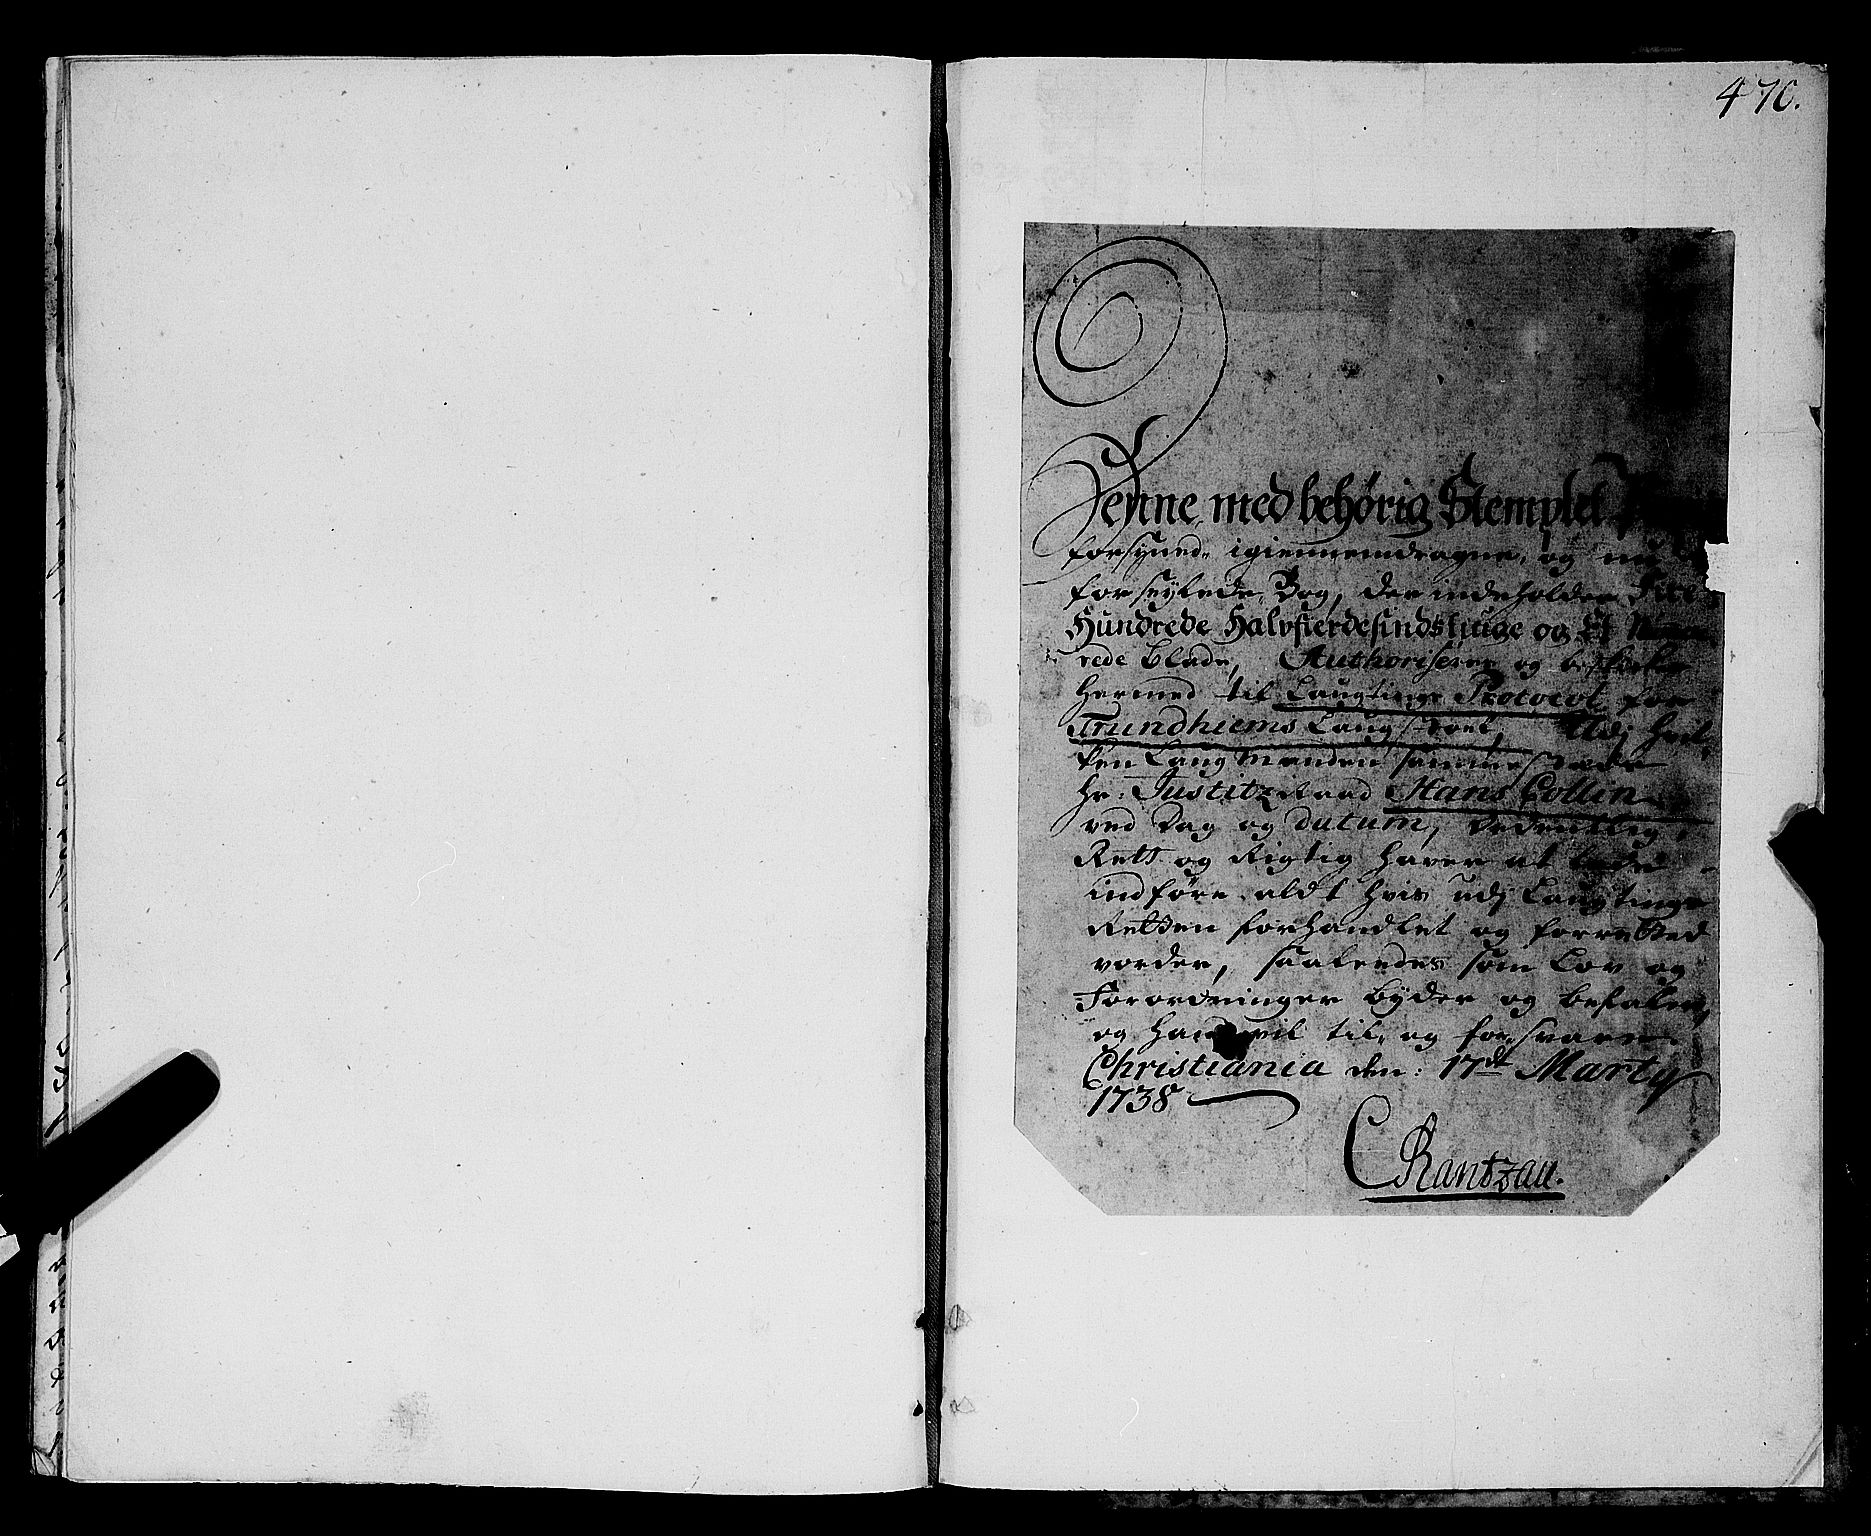 470.
Denne, med behørig Stemplet
forsyned, igiennemdragne, og
forseylede, Bog, der indeholder Fire
Hundrede Halvfierdesindstiuge og Et
rede blade, Authoriseres og
hermed til Laugtings Protocol for
Trundhiems Laugstoel, Udj hvil-
ken Laug Manden sammestæds
Hr: Justitz Raad Hans Collin
ved Dag og datum, Ordentlig,
Rett og Rigtig haver at
indføre aldt hvis udj Laugtings
Retten forhandlet og forretted
vorder, saaledes som Lov og
Forordninger byder og befaler,
og hand vil til, og forsvare.
Christiania den: 17de Marty
1738
C Rantzau.